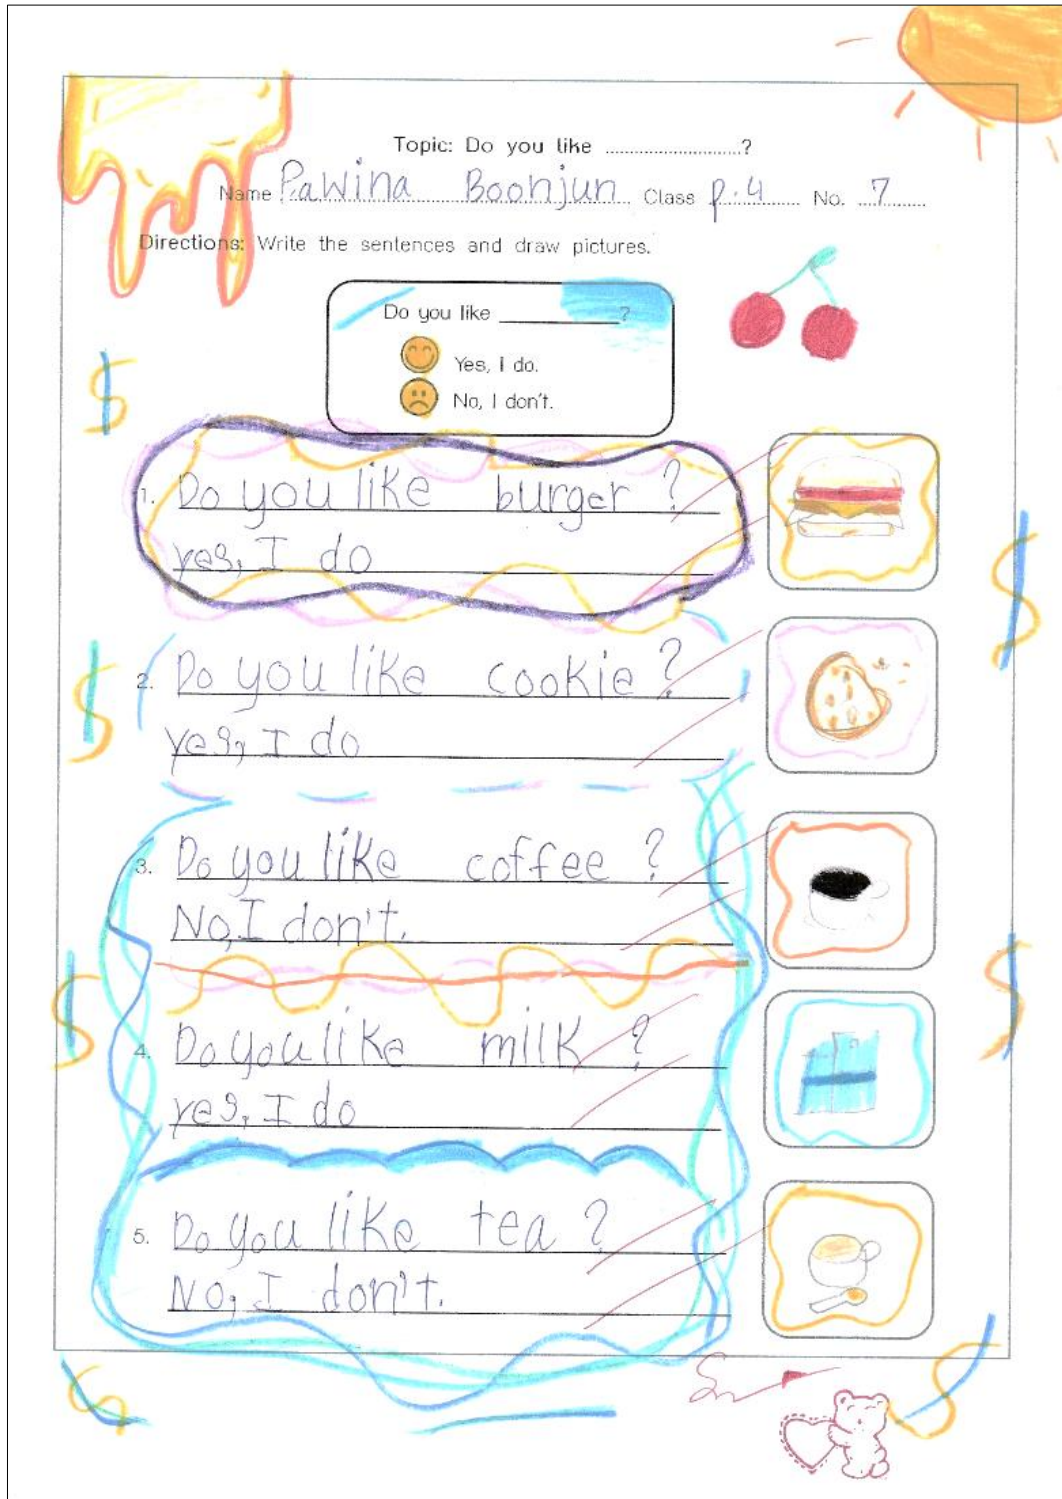 Topic: Do you like ............................?
Name Pawina Boonjun Class p.4 No. 7
Directions: Write the sentences and draw pictures.
Do you like ____________?
Yes, I do.
No, I don't.
1. Do you like burger ?
yes, I do
2. Do you like cookie ?
yes, I do
3. Do you like coffee ?
No, I don't.
4. Do you like milk ?
yes, I do
5. Do you like tea ?
No, I don't.